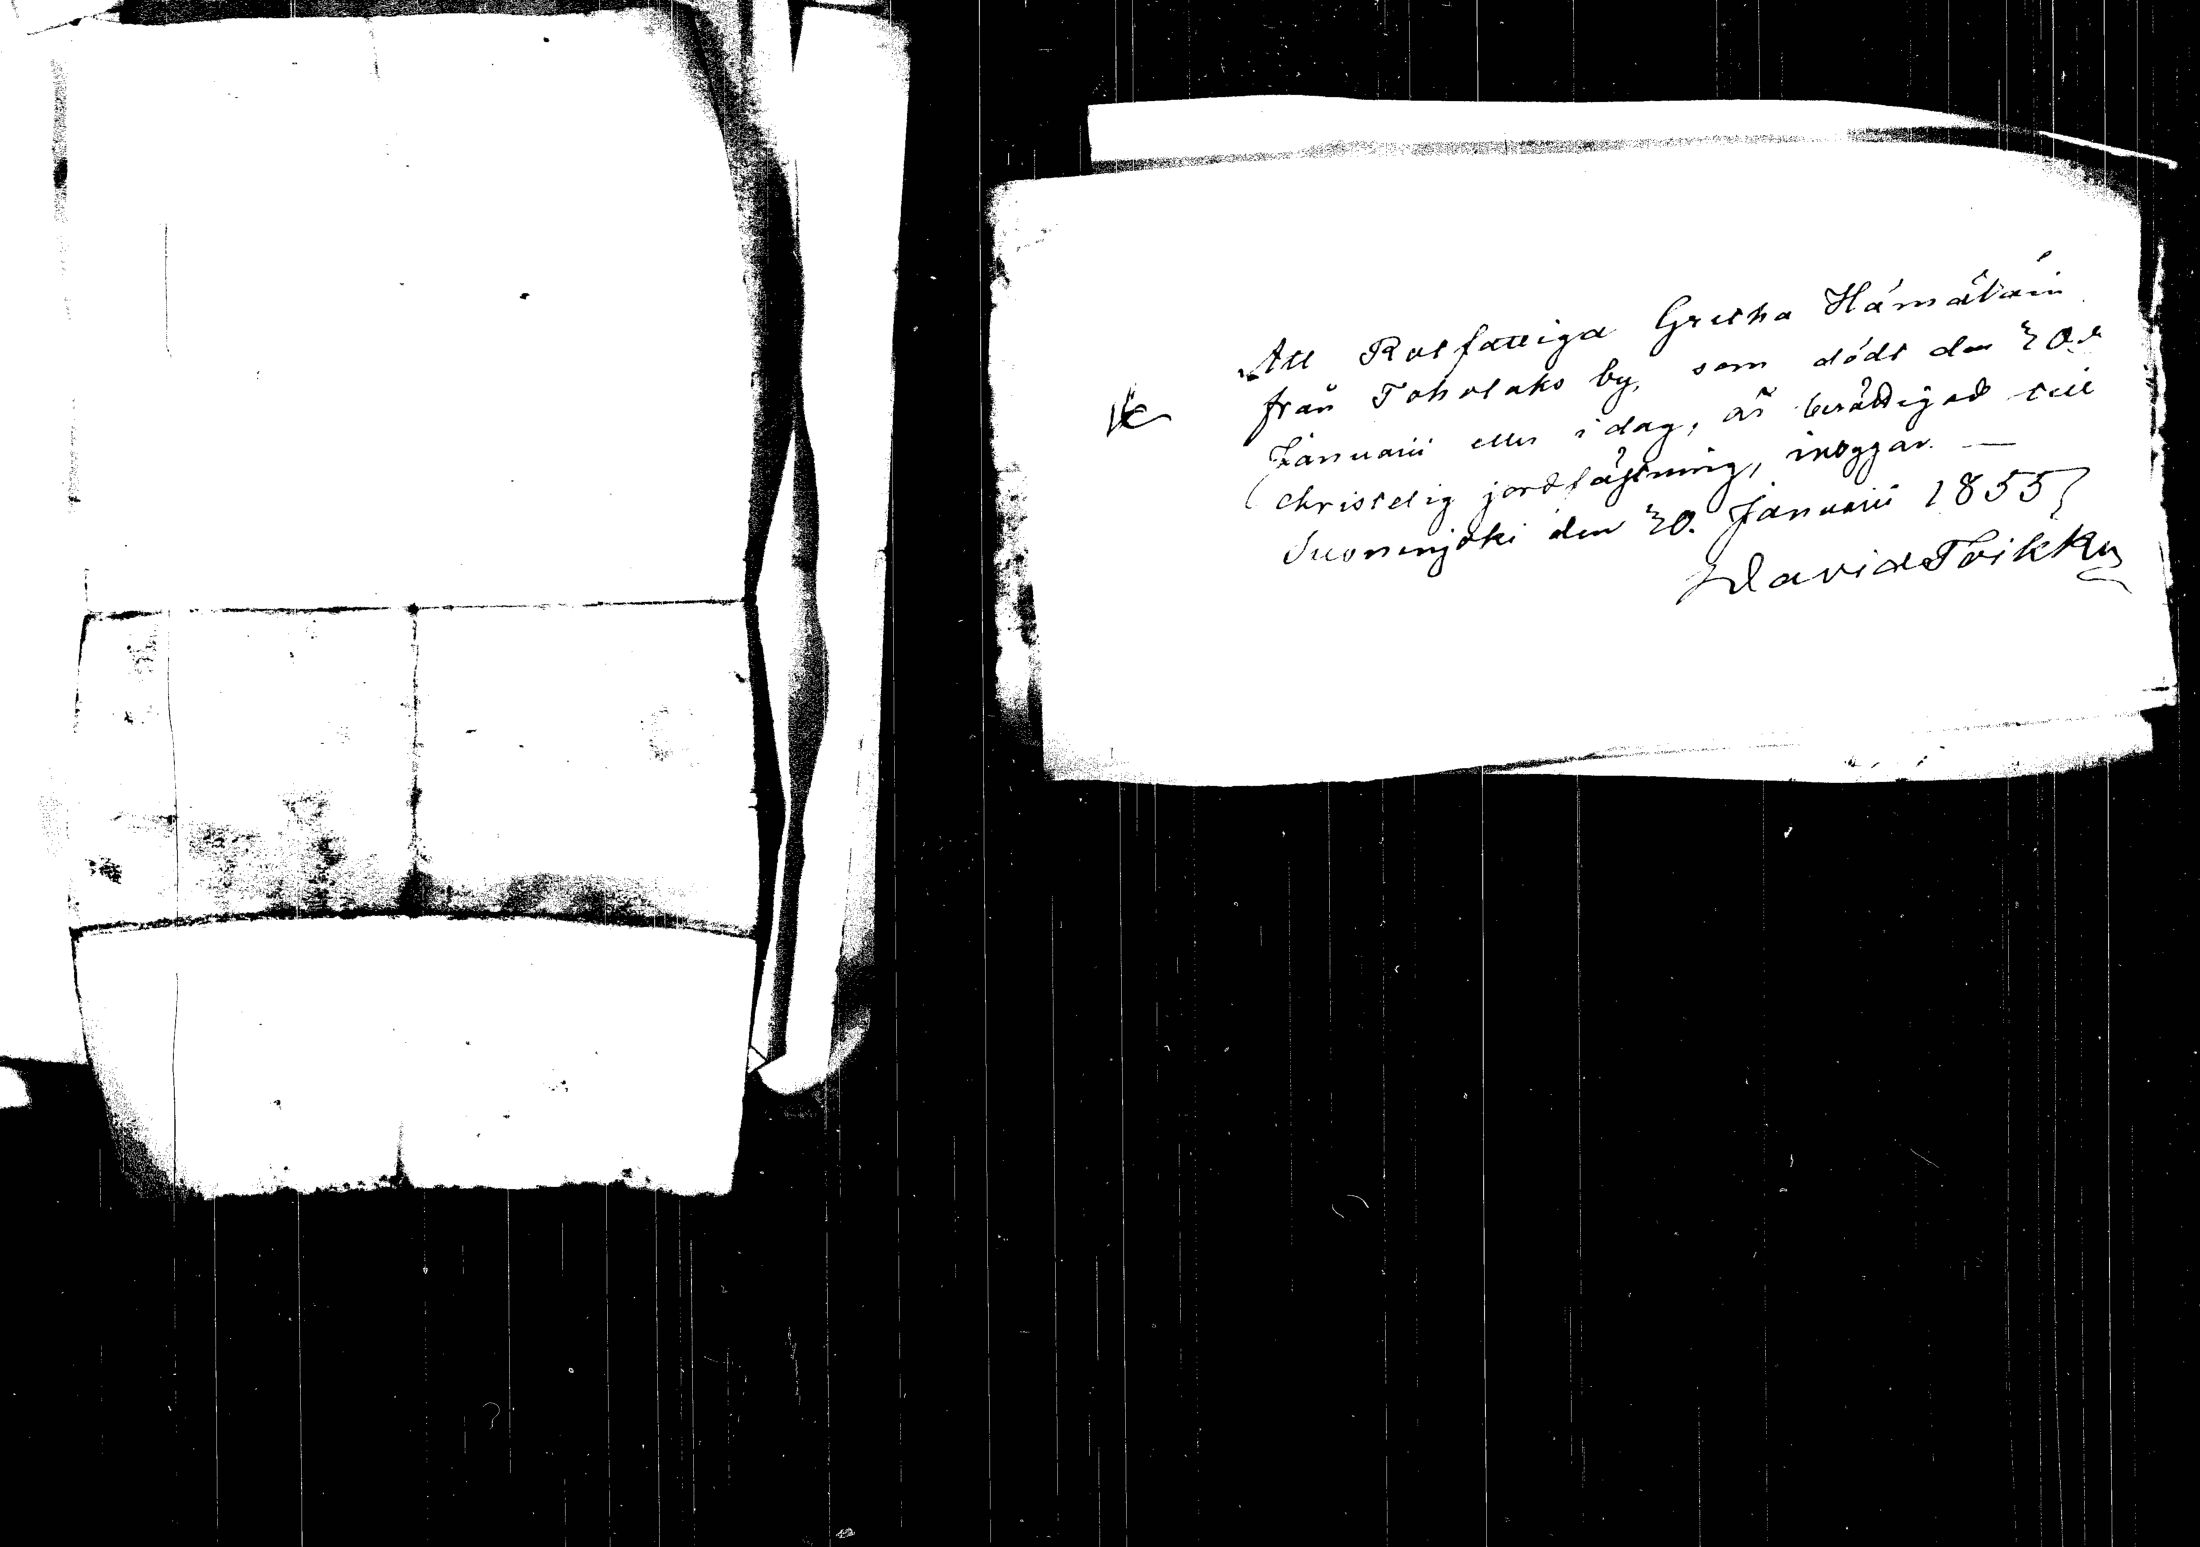 Att Rotfattiga Gretha Hämäläin
från Toholaks by, som dödt den 30de
Januarii eller idag, är berättigad till
christelig jordfästning, intygar. —
Suonenjoki den 30. Januarii 1855
David Toikka